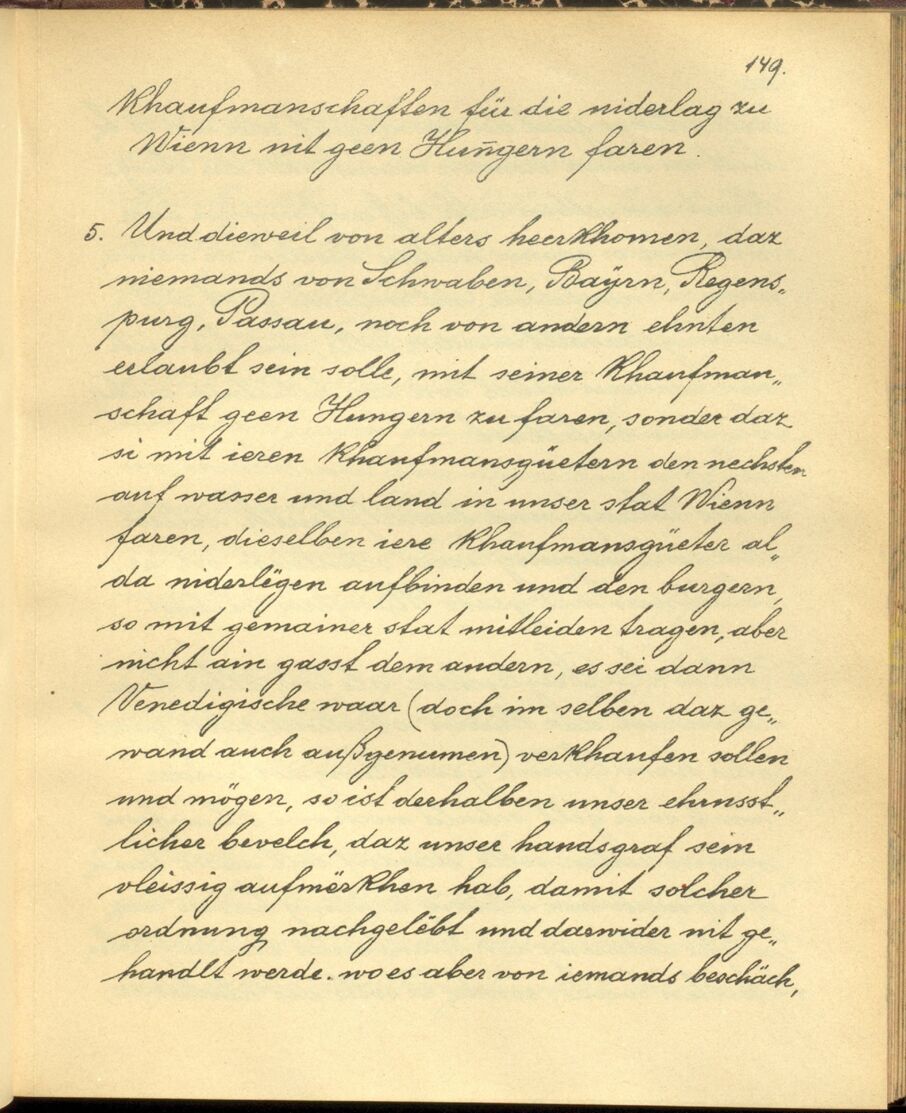 149.
Khaufmanschaften für die niderlag zu
Wienn nit geen Hungern faren.
5. Und dieweil von alters heerkhomen, daz
niemands von Schwaben, Bayrn, Regens„
purg, Passau, noch von andern ehnten
erlaubt sein solle, mit seiner Khaufman„
schaft geen Hungern zu faren, sonder daz
si mit ieren Khaufmansgüetern den nechsten
auf wasser und land in unser stat Wienn
faren, dieselben iere Khaufmansgüeter al„
da niderlëgen aufbinden und den burgern,
so mit gemainer stat mitleiden tragen, aber
nicht ain gasst dem andern, es sei dann
Venedigische waar (doch im selben daz ge„
wand auch außgenumen) verkhaufen sollen
und mögen, so ist derhalben unser ehrnsst„
licher bevelch, daz unser handsgraf sein
vleissig aufmërkhen hab, damit solcher
ordnung nachgelëbt und darwider nit ge„
handlt werde. wo es aber von iemands beschäch,